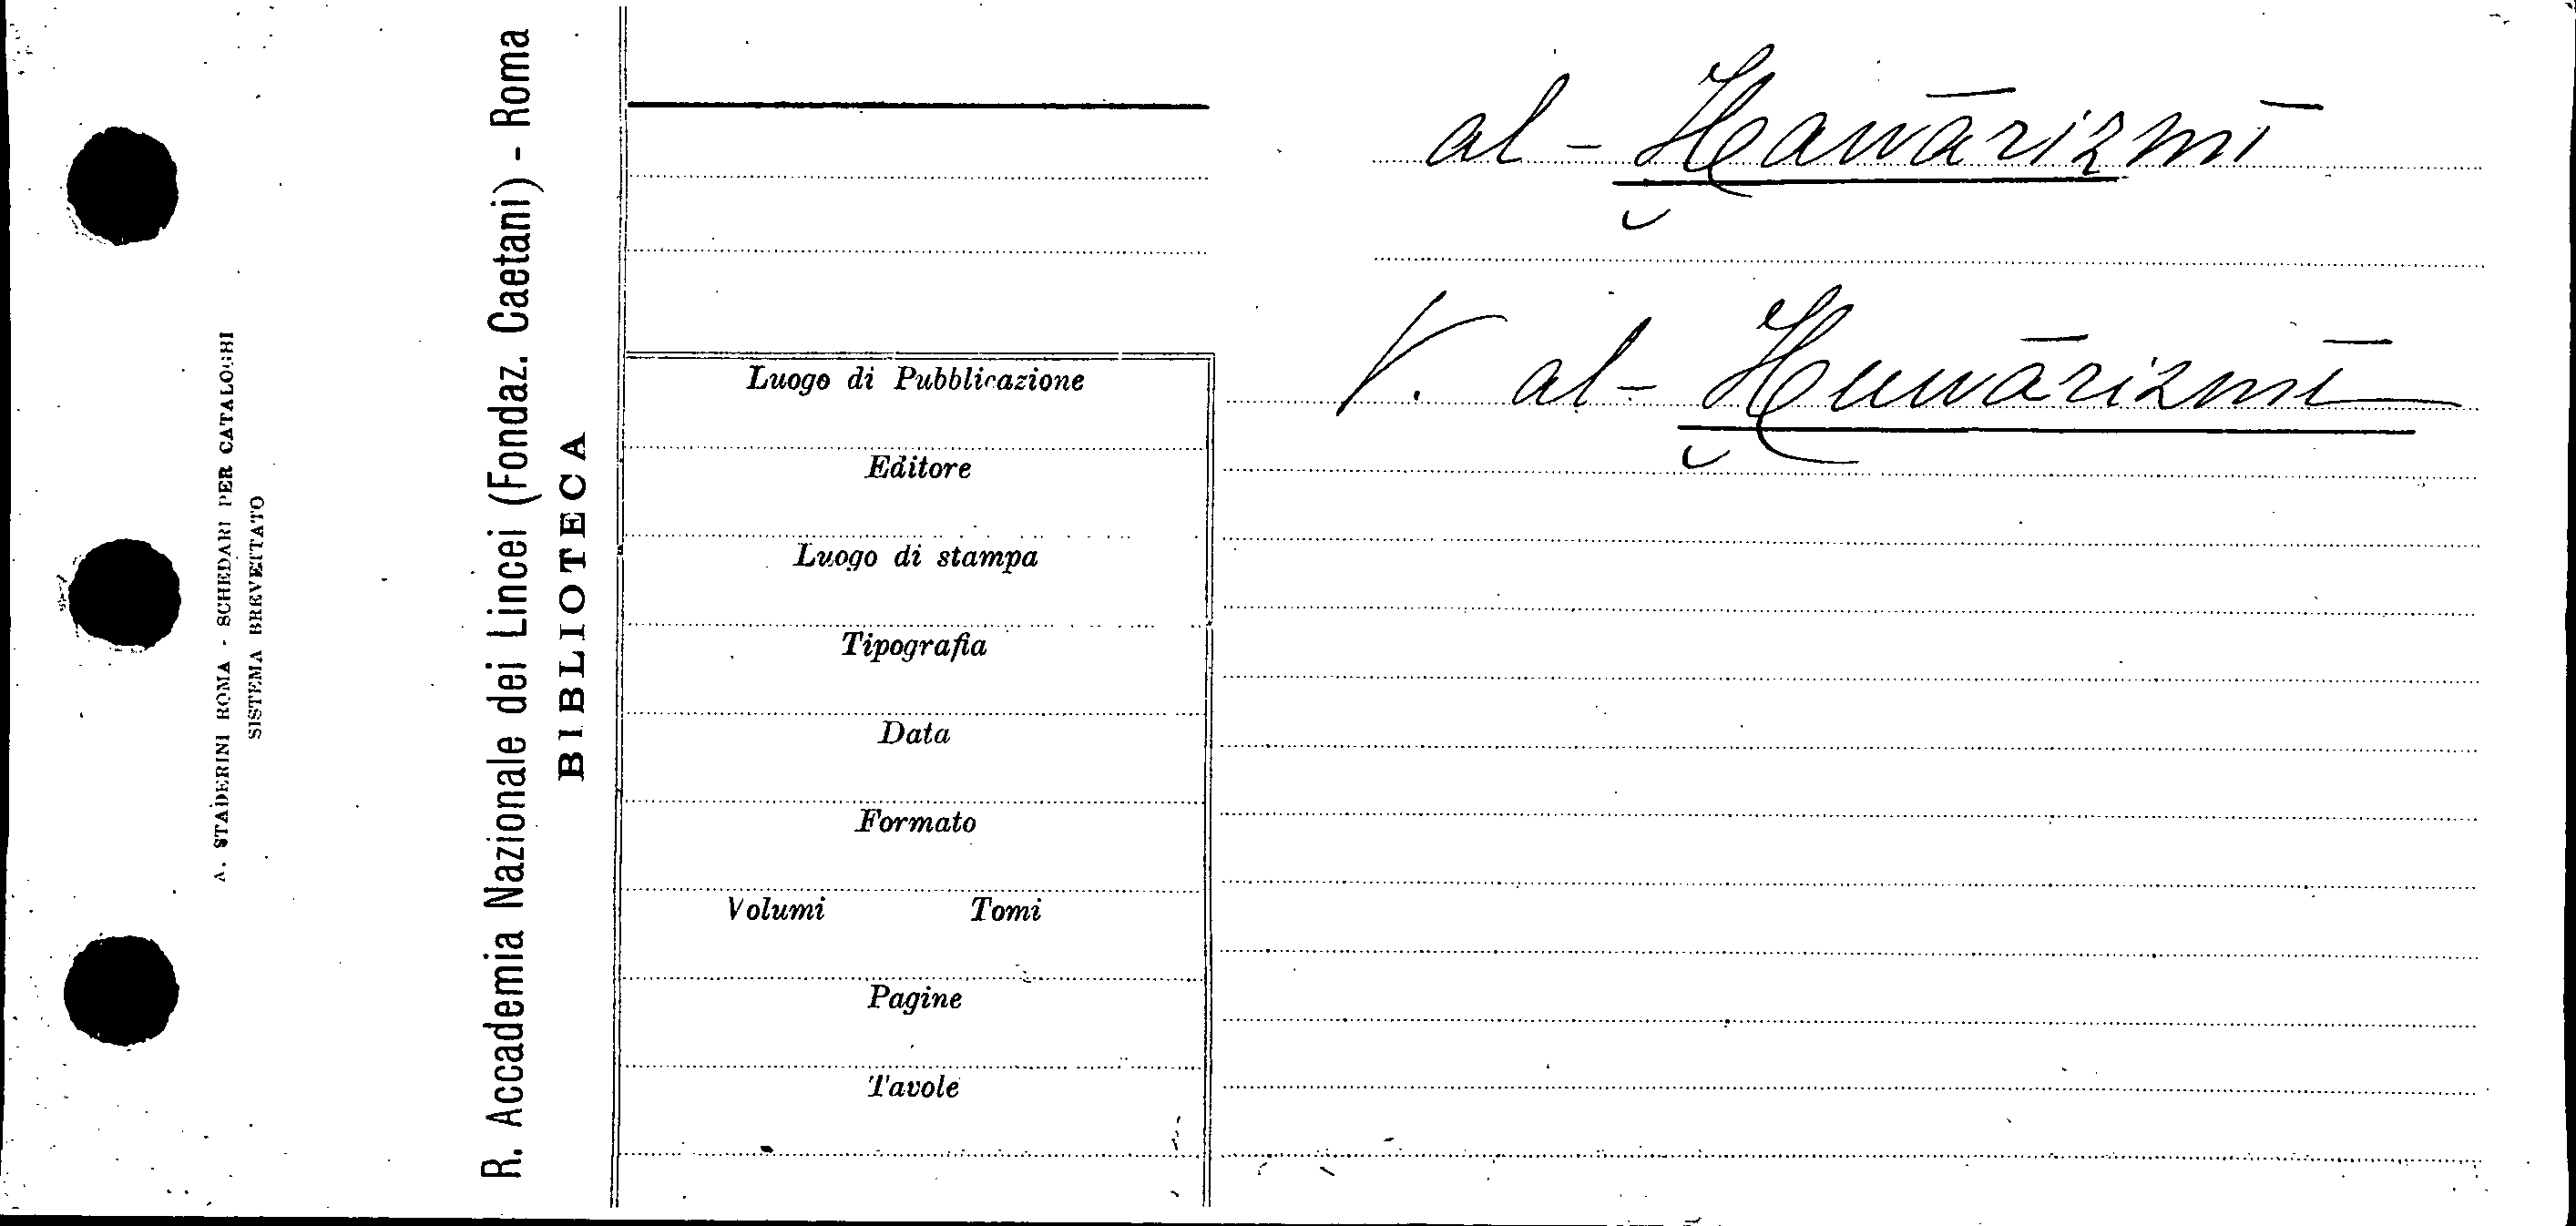 al-Ḫawārizmī
V. al-Ḫuwārizmī
Luogo di Pubblicazione
Editore
Luogo di stampa
Tipografia
Data
Formato
Volumi Tomi
Pagine
Tavole
R. Accademia Nazionale dei Lincei (Fondaz. Caetani) - Roma
BIBLIOTECA
A. STADERINI ROMA - SCHEDARI PER CATALOGHI
SISTEMA BREVETTATO